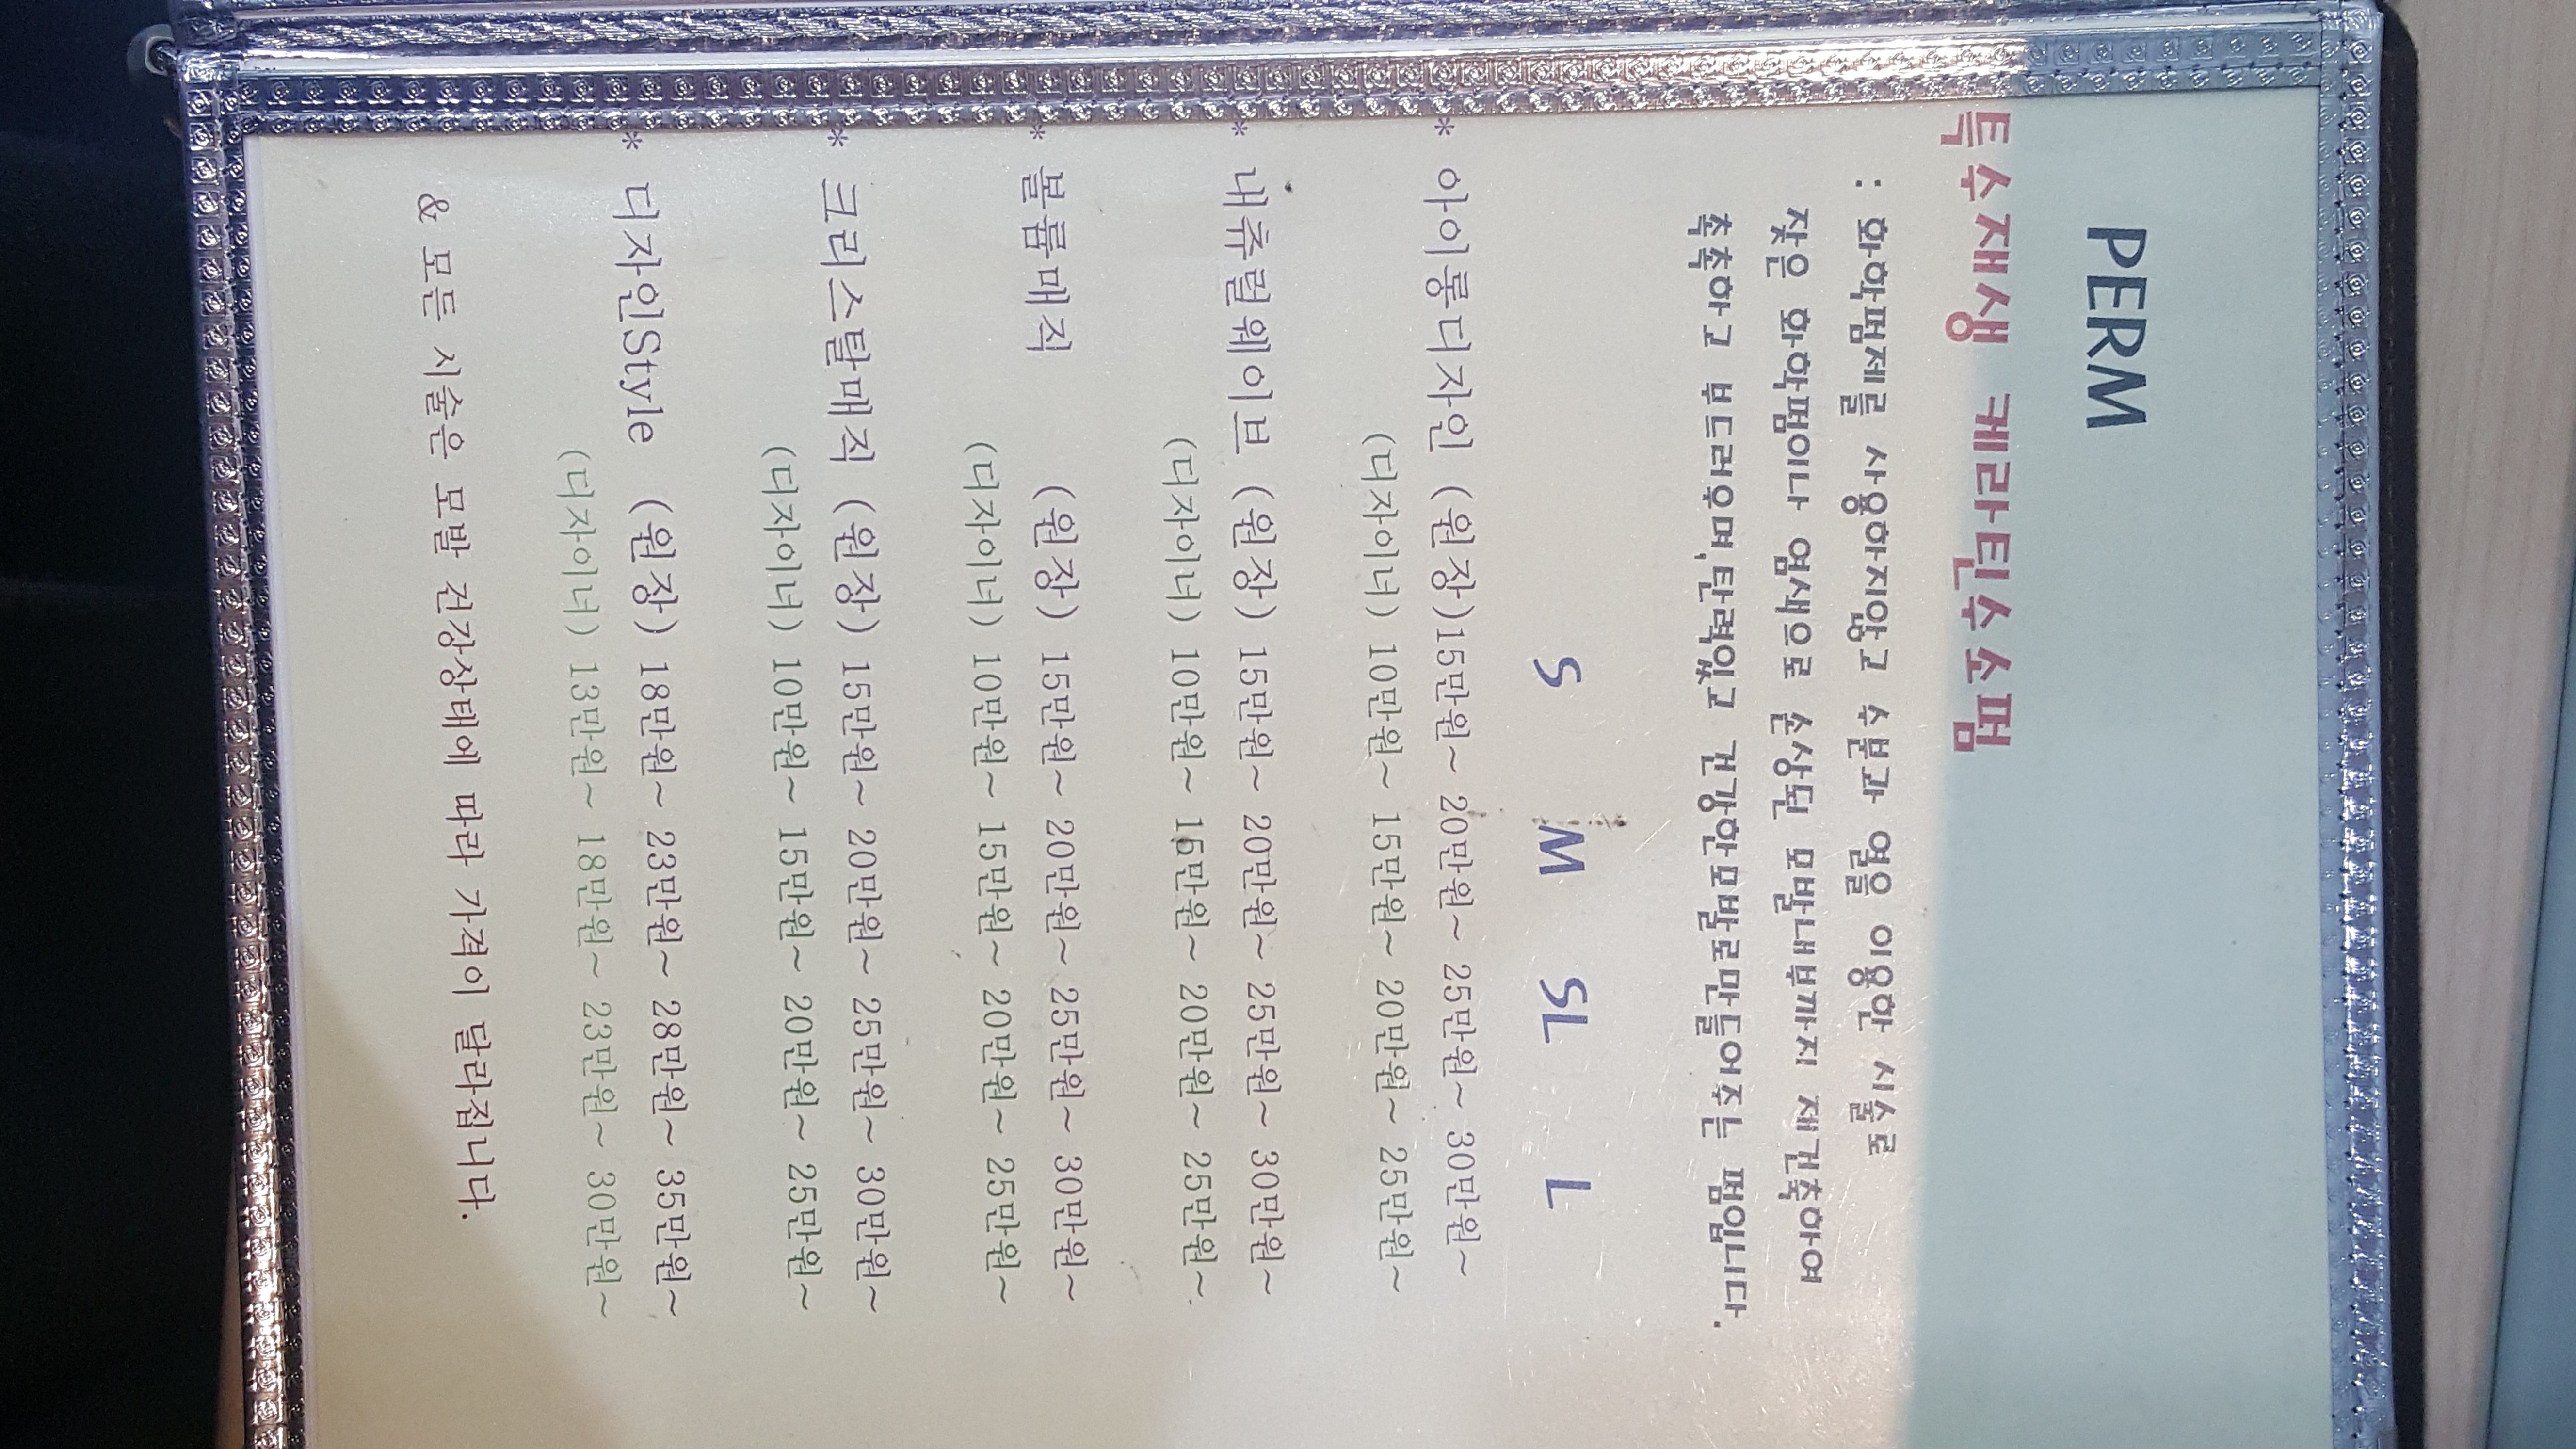 PERM
특수재생 케라틴수소펌
: 화학펌제를 사용하지않고 수분과 열을 이용한 시술로
잦은 화학펌이나 염색으로 손상된 모발내부까지 재건축하여
촉촉하고 부드러우며,탄력있고 건강한모발로만들어주는 펌입니다.
S M SL L
* 아이롱디자인 (원장)15만원~ 20만원~ 25만원~ 30만원~
(디자이너) 10만원~ 15만원~ 20만원~ 25만원~
* 내츄럴웨이브 (원장) 15만원~ 20만원~ 25만원~ 30만원~
(디자이너) 10만원~ 15만원~ 20만원~ 25만원~
* 볼륨매직 (원장) 15만원~ 20만원~ 25만원~ 30만원~
(디자이너) 10만원~ 15만원~ 20만원~ 25만원~
* 크리스탈매직 (원장) 15만원~ 20만원~ 25만원~ 30만원~
(디자이너) 10만원~ 15만원~ 20만원~ 25만원~
* 디자인Style (원장) 18만원~ 23만원~ 28만원~ 35만원~
(디자이너) 13만원~ 18만원~ 23만원~ 30만원~
& 모든 시술은 모발 건강상태에 따라 가격이 달라집니다.